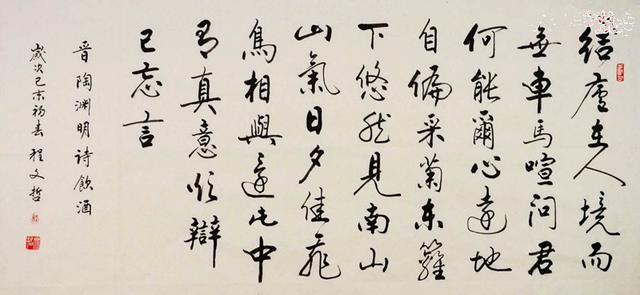 結廬在人境而
無車馬喧問君
何能爾心遠地
自偏采菊東籬
下悠然見南山
山氣日夕佳飛
鳥相與還此中
有真意欲辯
已忘言
晉陶渊明詩飲酒
歲次己未初春程文哲